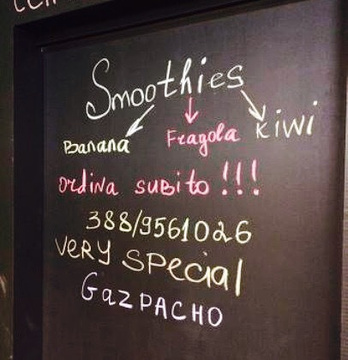 Smoothies
Banana Fragola Kiwi
ordina subito !!!
388/9561026
VERY SPECIAL
GAZPACHO